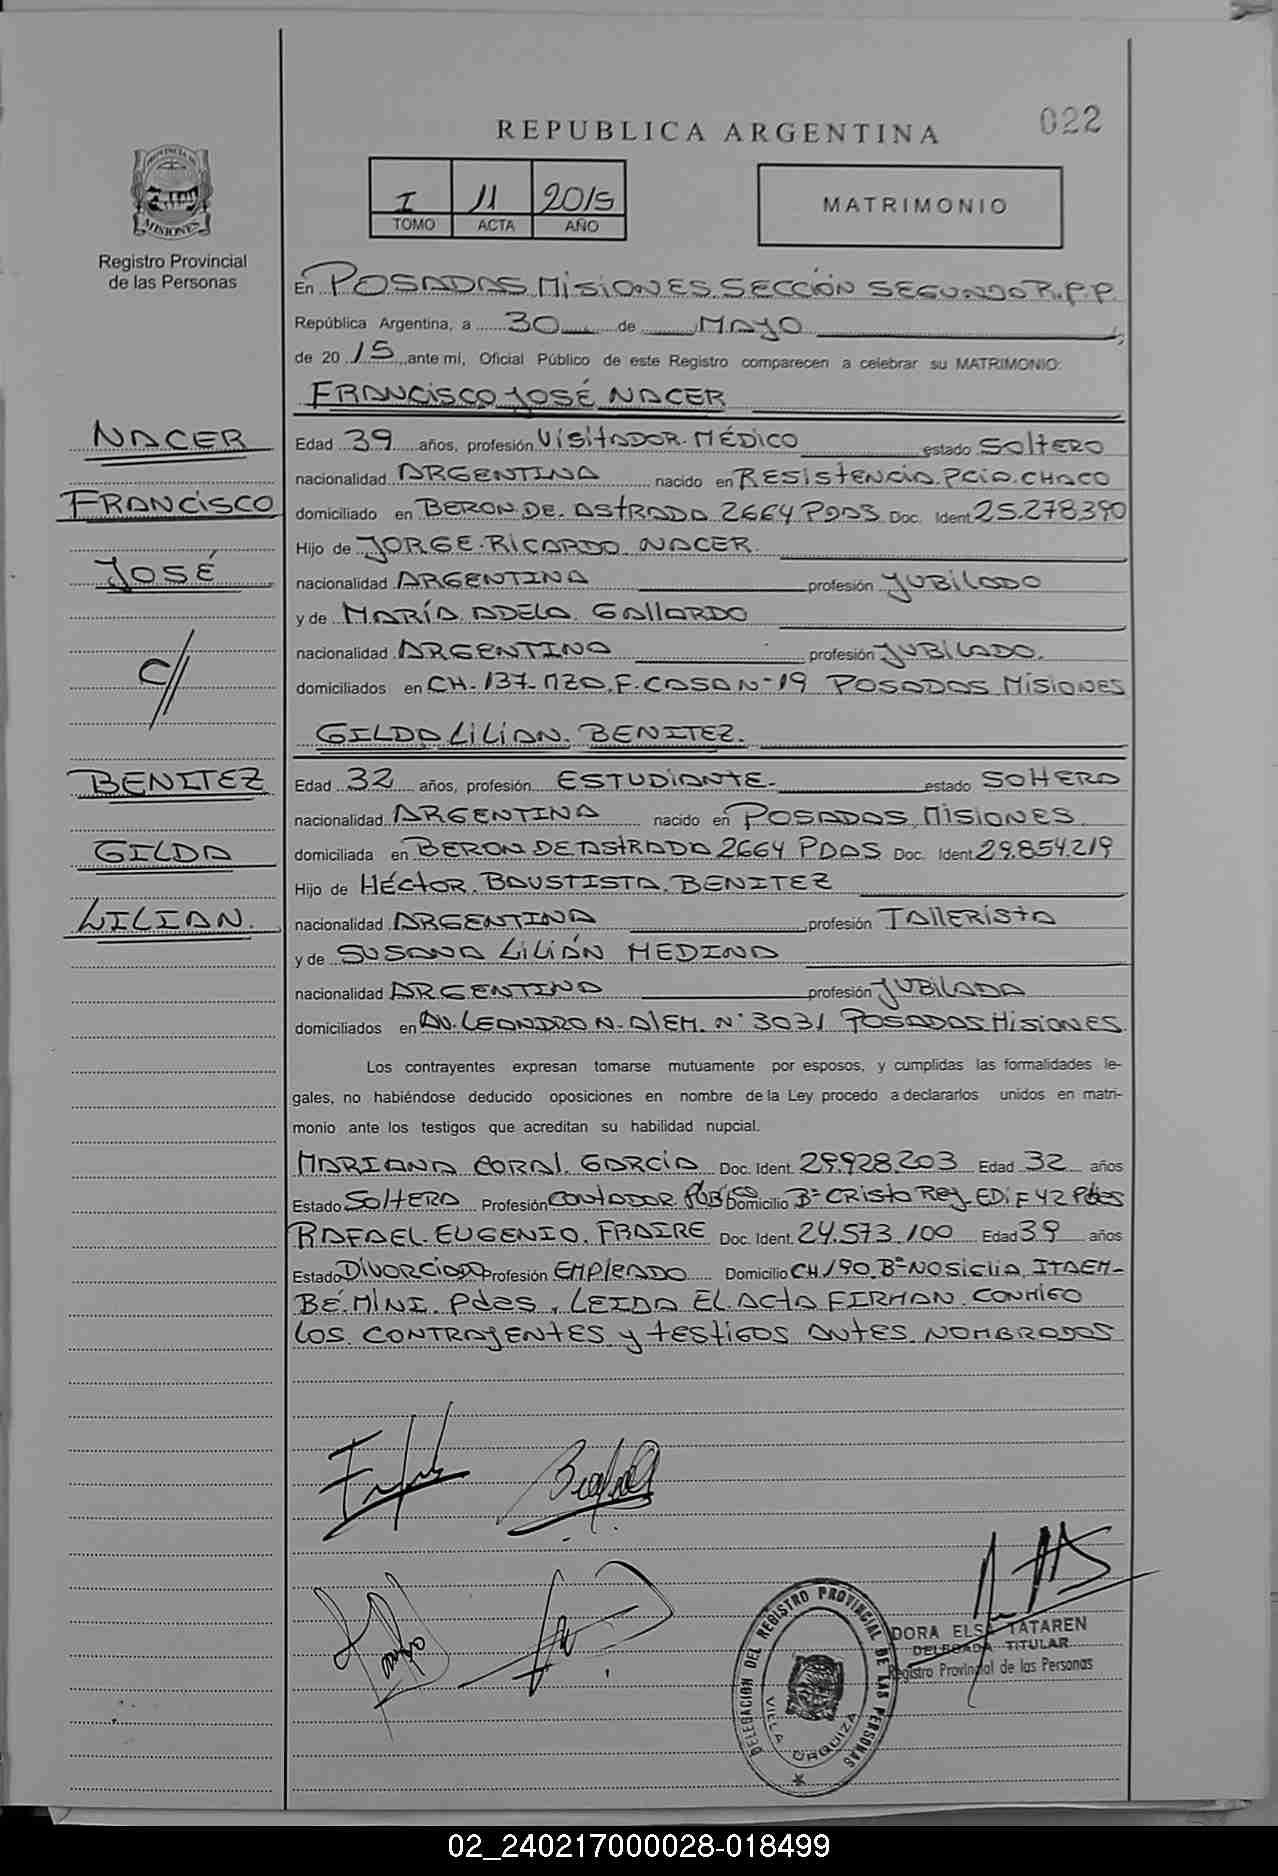 022
REPUBLICA ARGENTINA
PROVINCIA DE
MISIONES
Registro Provincial
de las Personas
I 11 2015
TOMO ACTA AÑO
MATRIMONIO
En POSADAS MISIONES SECCIÓN SEGUNDO R.P.P.
República Argentina, a 30 de MAYO
de 20 15 ante mi, Oficial Público de este Registro comparecen a celebrar su MATRIMONIO:
FRANCISCO JOSÉ NACER
NACER
FRANCISCO
JOSÉ
C//
BENITEZ
GILDA
LILIAN.
Edad 39 años, profesión VISITADOR MÉDICO estado SOLTERO
nacionalidad ARGENTINA nacido en RESISTENCIA PCIA. CHACO
domiciliado en BERON DE ASTRADA 2664 PDAS Doc. Ident. 25.278.390
Hijo de JORGE RICARDO NACER
nacionalidad ARGENTINA profesión JUBILADO
y de MARÍA ADELA GALLARDO
nacionalidad ARGENTINA profesión JUBILADO.
domiciliados en CH. 137- MZA. F. CASA N-19 POSADAS MISIONES
GILDA LILIAN. BENITEZ.
Edad 32 años, profesión ESTUDIANTE- estado SOLTERA
nacionalidad ARGENTINA nacido en POSADAS MISIONES
domiciliada en BERON DE ASTRADA 2664 PDAS Doc. Ident. 29.854.219
Hijo de HÉCTOR. BAUSTISTA. BENITEZ
nacionalidad ARGENTINA profesión TALLERISTA
y de SUSANA LILIÁN MEDINA
nacionalidad ARGENTINA profesión JUBILADA
domiciliados en AV. LEANDRO N. ALEM. N° 3031 POSADAS MISIONES
Los contrayentes expresan tomarse mutuamente por esposos, y cumplidas las formalidades le-
gales, no habiéndose deducido oposiciones en nombre de la Ley procedo a declararlos unidos en matri-
monio ante los testigos que acreditan su habilidad nupcial.
MARIANA CORAL GARCÍA Doc. Ident. 29.928.203 Edad 32 años
Estado SOLTERA Profesión CONTADOR PÚBLICO Domicilio B° CRISTO REY EDIF 42 Pdas
RAFAEL EUGENIO. FRAIRE Doc. Ident. 24.573.100 Edad 39 años
Estado DIVORCIADO Profesión EMPLEADO Domicilio CH 190 B° NOSIGLIA ITAEM-
BÉ MINI. Pdas, LEIDA EL ACTA FIRMAN CONMIGO
LOS CONTRAYENTES y TESTIGOS ANTES NOMBRADOS
DELEGACION DEL REGISTRO PROVINCIAL DE LAS PERSONAS
VILLA URQUIZA
DORA ELSA TATAREN
DELEGADA TITULAR
Registro Provincial de las Personas
02_240217000028-018499